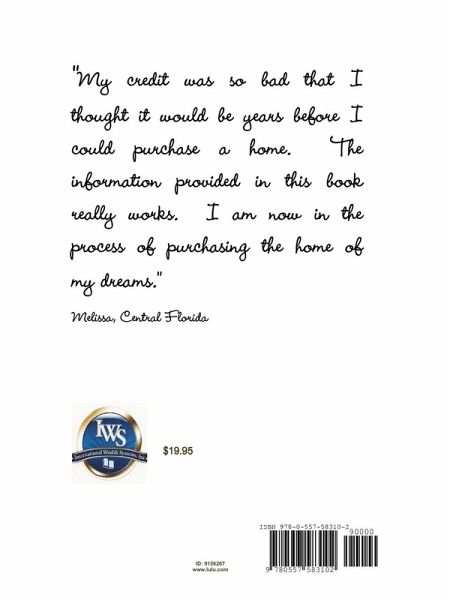 "My credit was so bad that I
thought it would be years before I
could purchase a home. The
information provided in this book
really works. I am now in the
process of purchasing the home of
my dreams."
Melissa, Central Florida
IWS
International Wealth Systems, Inc
$19.95
ISBN 978-0-557-58310-2
90000
9 780557 583102
ID: 9156267
www.lulu.com